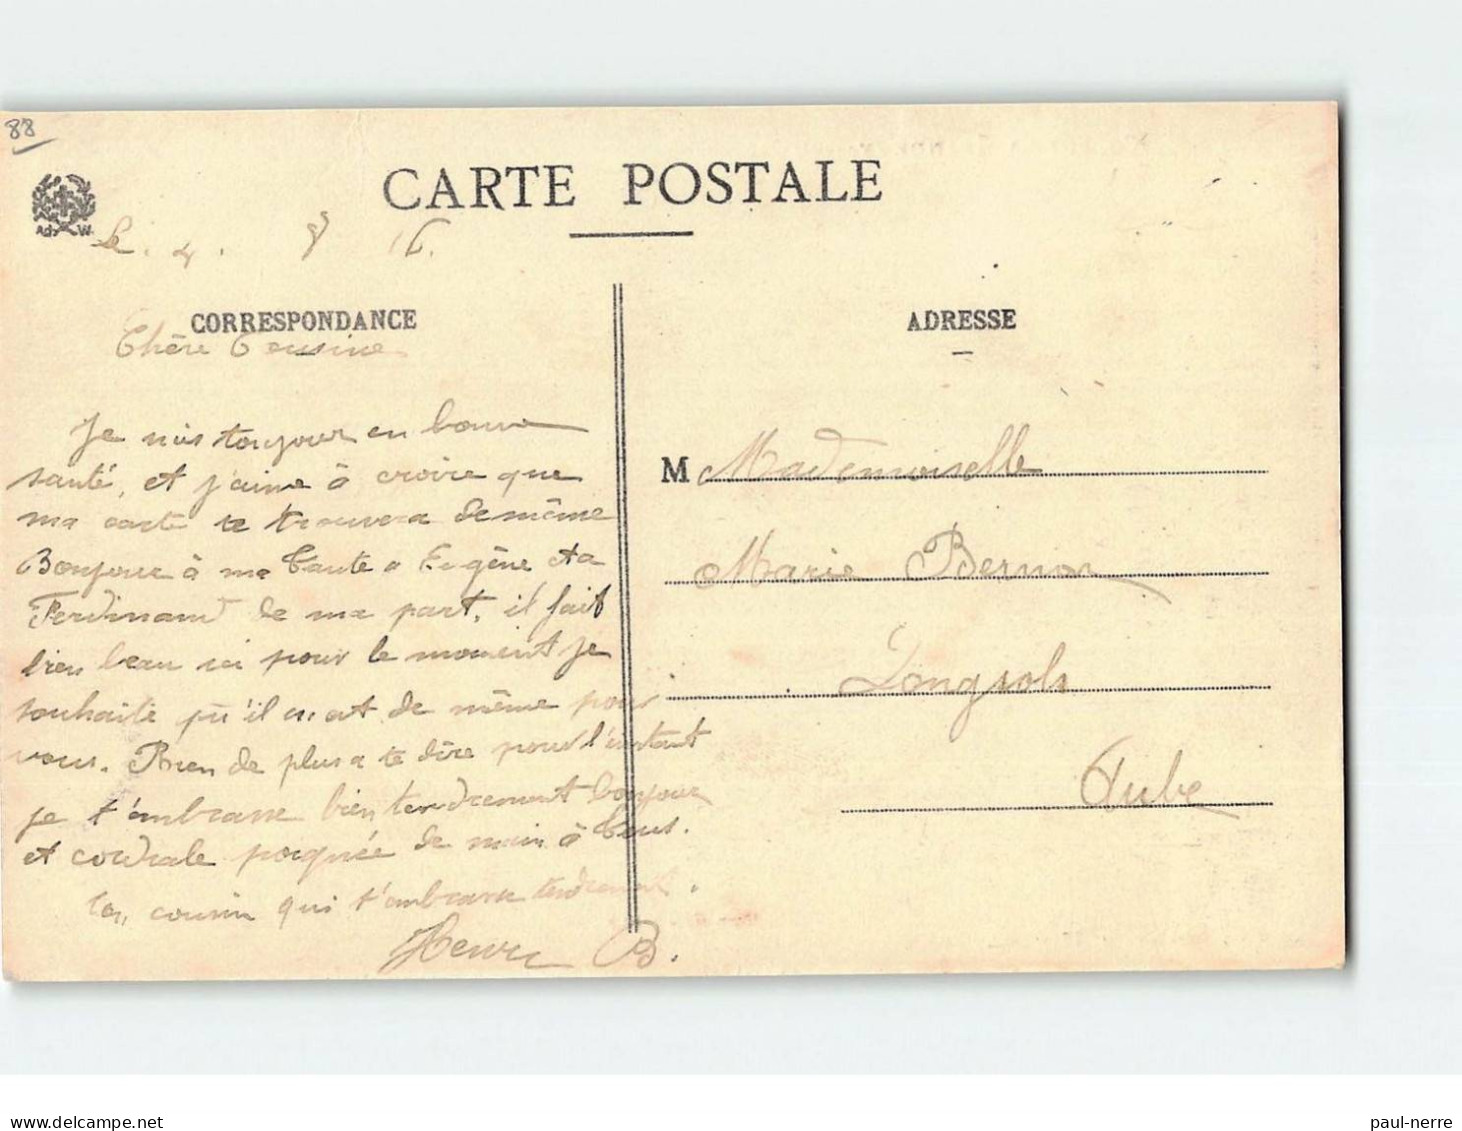 88
CARTE POSTALE
Ad W.
Le. 4. 8 16.
CORRESPONDANCE
Chère Cousine
Je suis toujour en bonne
santé, et j'aime à croire que
ma carte te trouvera de même
Bonjour à ma Tante a Eugène et a
Ferdinand de ma part, il fait
bien beau ici pour le moment je
souhaite qu'il en est de même pour
vous. Rien de plus a te dire pour l'instant
je t'embrasse bien tendrement bonjour
et cordiale poignée de main à Tous.
Ton cousin qui t'embrasse tendrement.
Henri B.
ADRESSE
M Mademoiselle
Marie Bernon
Longsols
Aube
paul-nerre